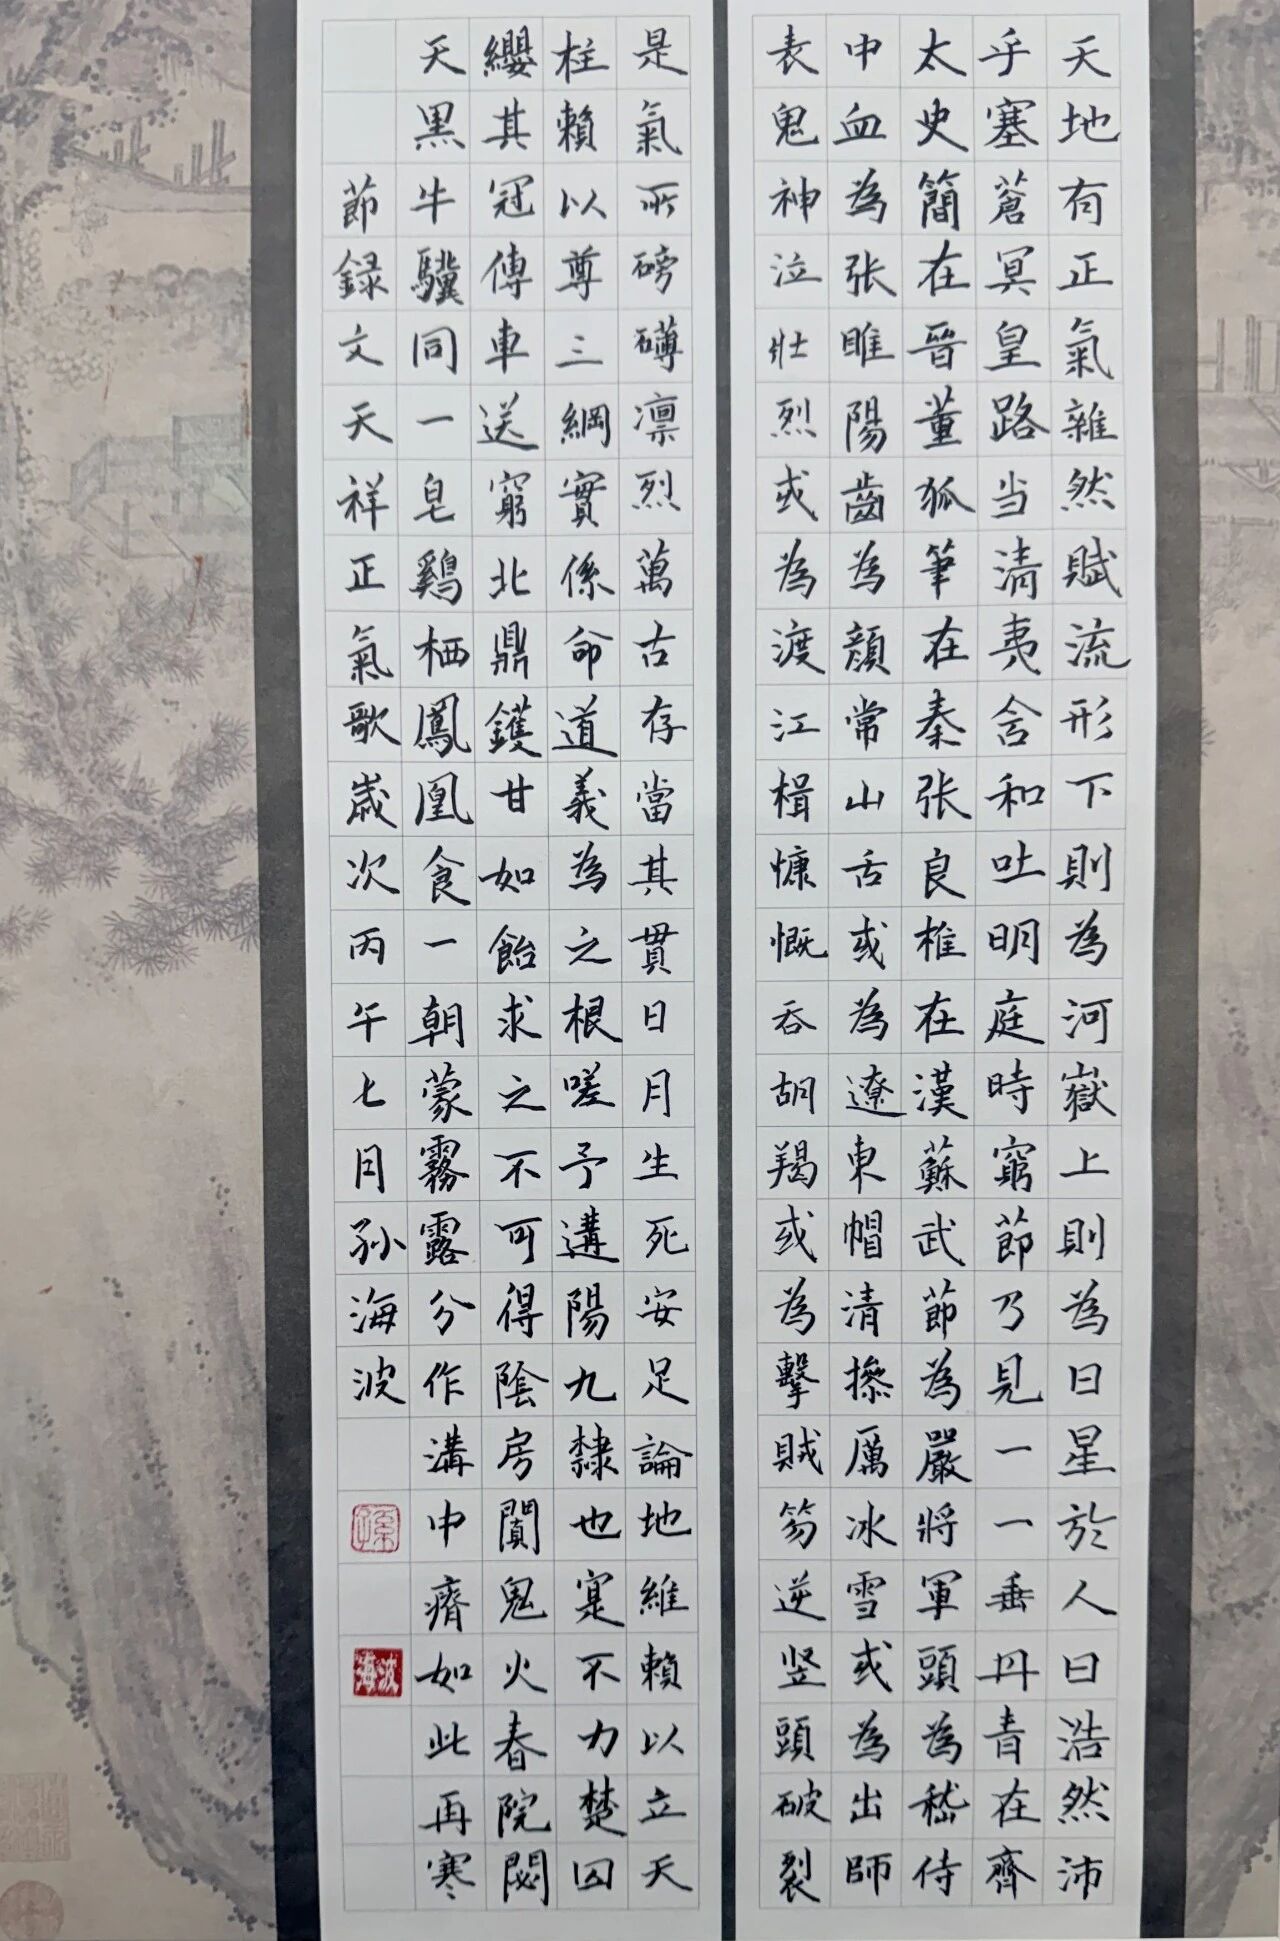 天地有正氣雜然賦流形下則為河嶽上則為日星於人曰浩然沛
乎塞蒼冥皇路当清夷含和吐明庭時窮節乃見一一垂丹青在齊
太史簡在晉董狐筆在秦張良椎在漢蘇武節為嚴將軍頭為嵇侍
中血為張睢陽齒為顏常山舌或為遼東帽清操厲冰雪或為出師
表鬼神泣壯烈或為渡江楫慷慨吞胡羯或為擊賊笏逆竖頭破裂
是氣所磅礡凛烈萬古存當其貫日月生死安足論地維賴以立天
柱賴以尊三綱實係命道義為之根嗟予遘陽九隸也寔不力楚囚
纓其冠傳車送窮北鼎鑊甘如飴求之不可得陰房闐鬼火春院閟
天黑牛驥同一皂鷄栖鳳凰食一朝蒙霧露分作溝中瘠如此再寒
節録文天祥正氣歌歲次丙午七月孫海波
孫
海波